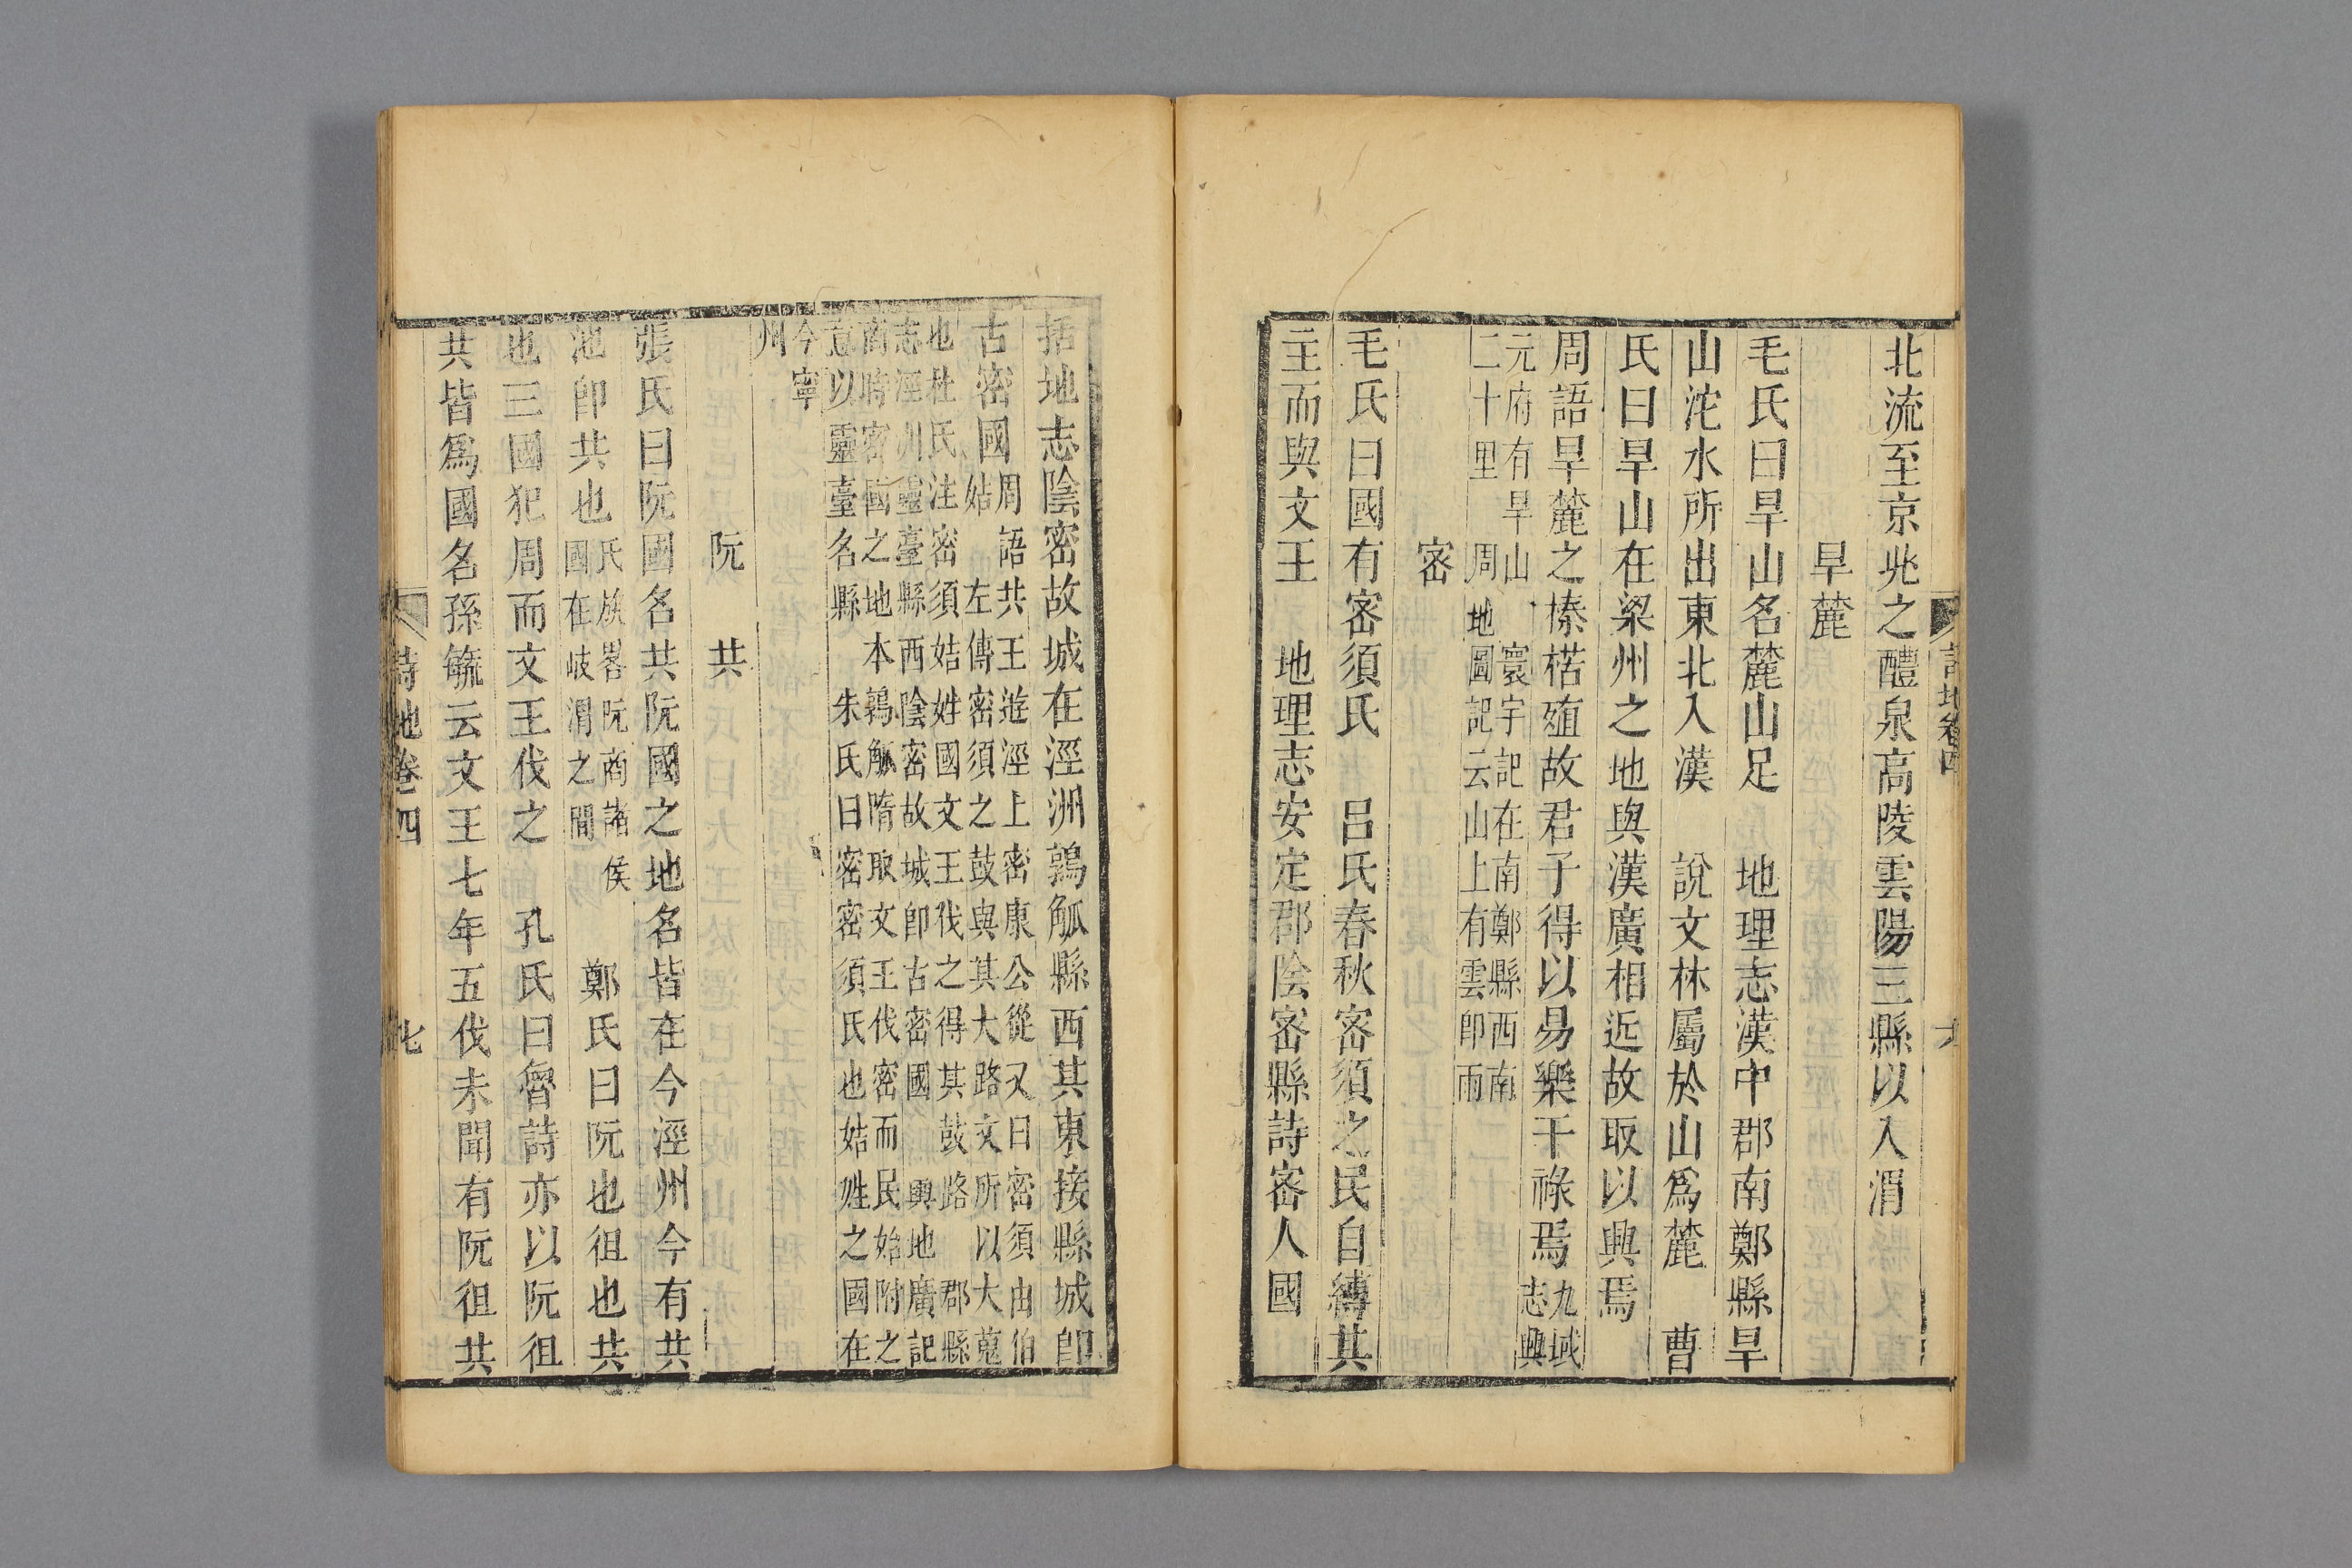 詩地卷四
北流至京兆之醴泉高陵雲陽三縣以入渭
旱麓
毛氏曰旱山名麓山足 地理志漢中郡南鄭縣旱
山沱水所出東北入漢 說文林屬於山爲麓 曹
氏曰旱山在梁州之地與漢廣相近故取以興焉
周語旱麓之榛楛殖故君子得以易樂干祿焉九域
志興
元府有旱山 寰宇記在南鄭縣西南
二十里 周地圖記云山上有雲即雨
密
毛氏曰國有密須氏 呂氏春秋密須之民自縛其
主而與文王 地理志安定郡陰密縣詩密人國
括地志陰密故城在涇洲鶉觚縣西其東接縣城卽
古密國周語共王遊涇上密康公從又曰密須由伯
姞 左傳密須之鼓與其大路文所以大蒐
也杜氏注密須姞姓國文王伐之得其鼓路 郡縣
志涇州靈臺縣西陰密故城卽古密國 輿地廣記
商時密國之地本鶉觚隋取文王伐密而民始附之
意以靈臺名縣 朱氏曰密密須氏也姞姓之國在
今寧
州
阮 共
張氏曰阮國名共阮國之地名皆在今涇州今有共
池卽共也氏族畧阮商諸侯
國在岐渭之間 鄭氏曰阮也徂也共
也三國犯周而文王伐之 孔氏曰魯詩亦以阮徂
共皆爲國名孫毓云文王七年五伐未聞有阮徂共
詩地卷四 七